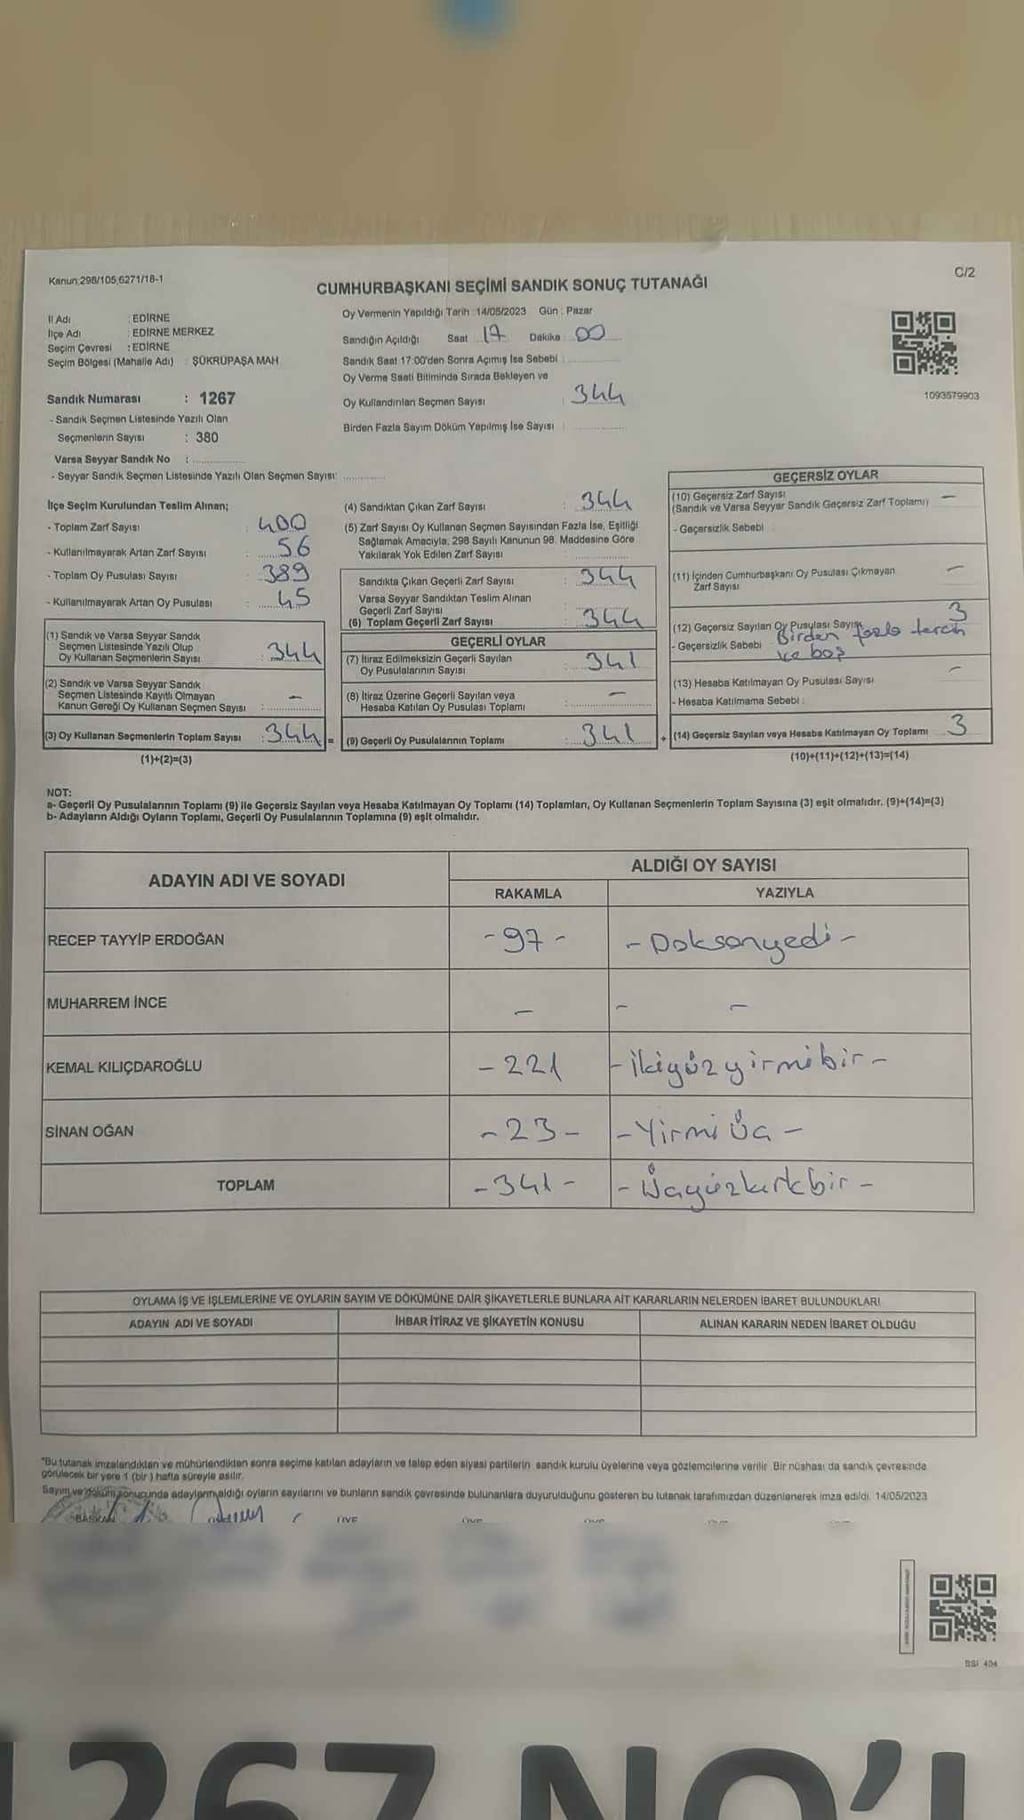 Kanun:298/105,6271/18-1
C/2
CUMHURBAŞKANI SEÇİMİ SANDIK SONUÇ TUTANAĞI
İl Adı : EDİRNE
İlçe Adı : EDİRNE MERKEZ
Seçim Çevresi : EDİRNE
Seçim Bölgesi (Mahalle Adı) : ŞÜKRÜPAŞA MAH
Sandık Numarası : 1267
- Sandık Seçmen Listesinde Yazılı Olan
Seçmenlerin Sayısı : 380
Varsa Seyyar Sandık No :
- Seyyar Sandık Seçmen Listesinde Yazılı Olan Seçmen Sayısı:
Oy Vermenin Yapıldığı Tarih : 14/05/2023 Gün : Pazar
Sandığın Açıldığı Saat 17 Dakika 00
Sandık Saat 17:00'den Sonra Açımış İse Sebebi
Oy Verme Saati Bitiminde Sırada Bekleyen ve
Oy Kullandırılan Seçmen Sayısı 344
Birden Fazla Sayım Döküm Yapılmış İse Sayısı :
1093579903
İlçe Seçim Kurulundan Teslim Alınan;
- Toplam Zarf Sayısı : 400
- Kullanılmayarak Artan Zarf Sayısı : 56
- Toplam Oy Pusulası Sayısı : 389
- Kullanılmayarak Artan Oy Pusulası : 45
(1) Sandık ve Varsa Seyyar Sandık
Seçmen Listesinde Yazılı Olup
Oy Kullanan Seçmenlerin Sayısı : 344
(2) Sandık ve Varsa Seyyar Sandık
Seçmen Listesinde Kayıtlı Olmayan
Kanun Gereği Oy Kullanan Seçmen Sayısı : –
(3) Oy Kullanan Seçmenlerin Toplam Sayısı : 344 =
(1)+(2)=(3)
(4) Sandıktan Çıkan Zarf Sayısı : 344
(5) Zarf Sayısı Oy Kullanan Seçmen Sayısından Fazla İse, Eşitliği
Sağlamak Amacıyla, 298 Sayılı Kanunun 98. Maddesine Göre
Yakılarak Yok Edilen Zarf Sayısı :
Sandıkta Çıkan Geçerli Zarf Sayısı : 344
Varsa Seyyar Sandıktan Teslim Alınan
Geçerli Zarf Sayısı
(6) Toplam Geçerli Zarf Sayısı : 344
GEÇERLİ OYLAR
(7) İtiraz Edilmeksizin Geçerli Sayılan
Oy Pusulalarının Sayısı : 341
(8) İtiraz Üzerine Geçerli Sayılan veya
Hesaba Katılan Oy Pusulası Toplamı : –
(9) Geçerli Oy Pusulalarının Toplamı : 341 +
GEÇERSİZ OYLAR
(10) Geçersiz Zarf Sayısı –
(Sandık ve Varsa Seyyar Sandık Geçersiz Zarf Toplamı)
- Geçersizlik Sebebi :
(11) İçinden Cumhurbaşkanı Oy Pusulası Çıkmayan –
Zarf Sayısı
(12) Geçersiz Sayılan Oy Pusulası Sayısı 3
- Geçersizlik Sebebi Birden fazla tercih
ve boş
(13) Hesaba Katılmayan Oy Pusulası Sayısı –
- Hesaba Katılmama Sebebi :
(14) Geçersiz Sayılan veya Hesaba Katılmayan Oy Toplamı 3
(10)+(11)+(12)+(13)=(14)
NOT:
a- Geçerli Oy Pusulalarının Toplamı (9) ile Geçersiz Sayılan veya Hesaba Katılmayan Oy Toplamı (14) Toplamları, Oy Kullanan Seçmenlerin Toplam Sayısına (3) eşit olmalıdır. (9)+(14)=(3)
b- Adayların Aldığı Oyların Toplamı, Geçerli Oy Pusulalarının Toplamına (9) eşit olmalıdır.
ADAYIN ADI VE SOYADI ALDIĞI OY SAYISI
RAKAMLA YAZIYLA
RECEP TAYYİP ERDOĞAN -97- -Doksanyedi-
MUHARREM İNCE – – –
KEMAL KILIÇDAROĞLU -221 -ikiyüzyirmibir-
SİNAN OĞAN -23- -Yirmi Üç-
TOPLAM -341- -Üçyüzkırkbir-
OYLAMA İŞ VE İŞLEMLERİNE VE OYLARIN SAYIM VE DÖKÜMÜNE DAİR ŞİKAYETLERLE BUNLARA AİT KARARLARIN NELERDEN İBARET BULUNDUKLARI
ADAYIN ADI VE SOYADI İHBAR İTİRAZ VE ŞİKAYETİN KONUSU ALINAN KARARIN NEDEN İBARET OLDUĞU
*Bu tutanak imzalandıktan ve mühürlendikten sonra seçime katılan adayların ve talep eden siyasi partilerin sandık kurulu üyelerine veya gözlemcilerine verilir. Bir nüshası da sandık çevresinde
görülecek bir yere 1 (bir) hafta süreyle asılır.
Sayım ve döküm sonucunda adayların aldığı oyların sayılarını ve bunların sandık çevresinde bulunanlara duyurulduğunu gösteren bu tutanak tarafımızdan düzenlenerek imza edildi. 14/05/2023
BAŞKAN
267 NO'L